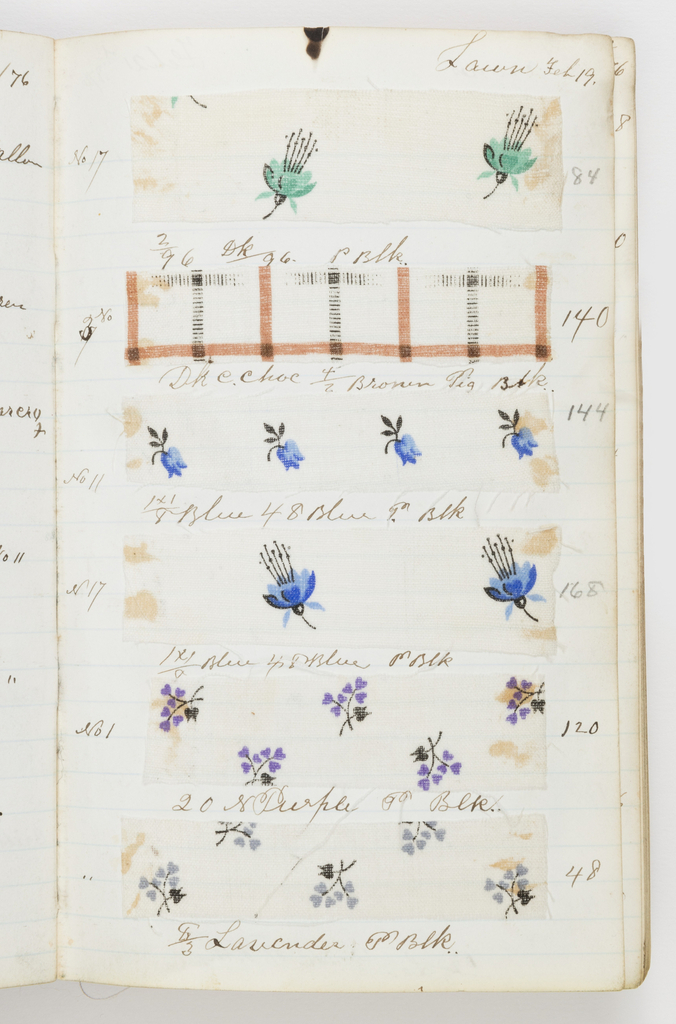 Lawn Feb 19.
/76
No 17
84
allon
2/96 Dk 96. P Blk.
No
9
140
Dk C. Choc 4/2 Brown Pig Blk.
144
No 11
1x1/8 Blue 48 Blue P Blk
No 11
No 17
168
1x1/8 Blue 48 Blue P Blk
"
No 1
120
20 N Purple P Blk.
"
48
Lavender P Blk.